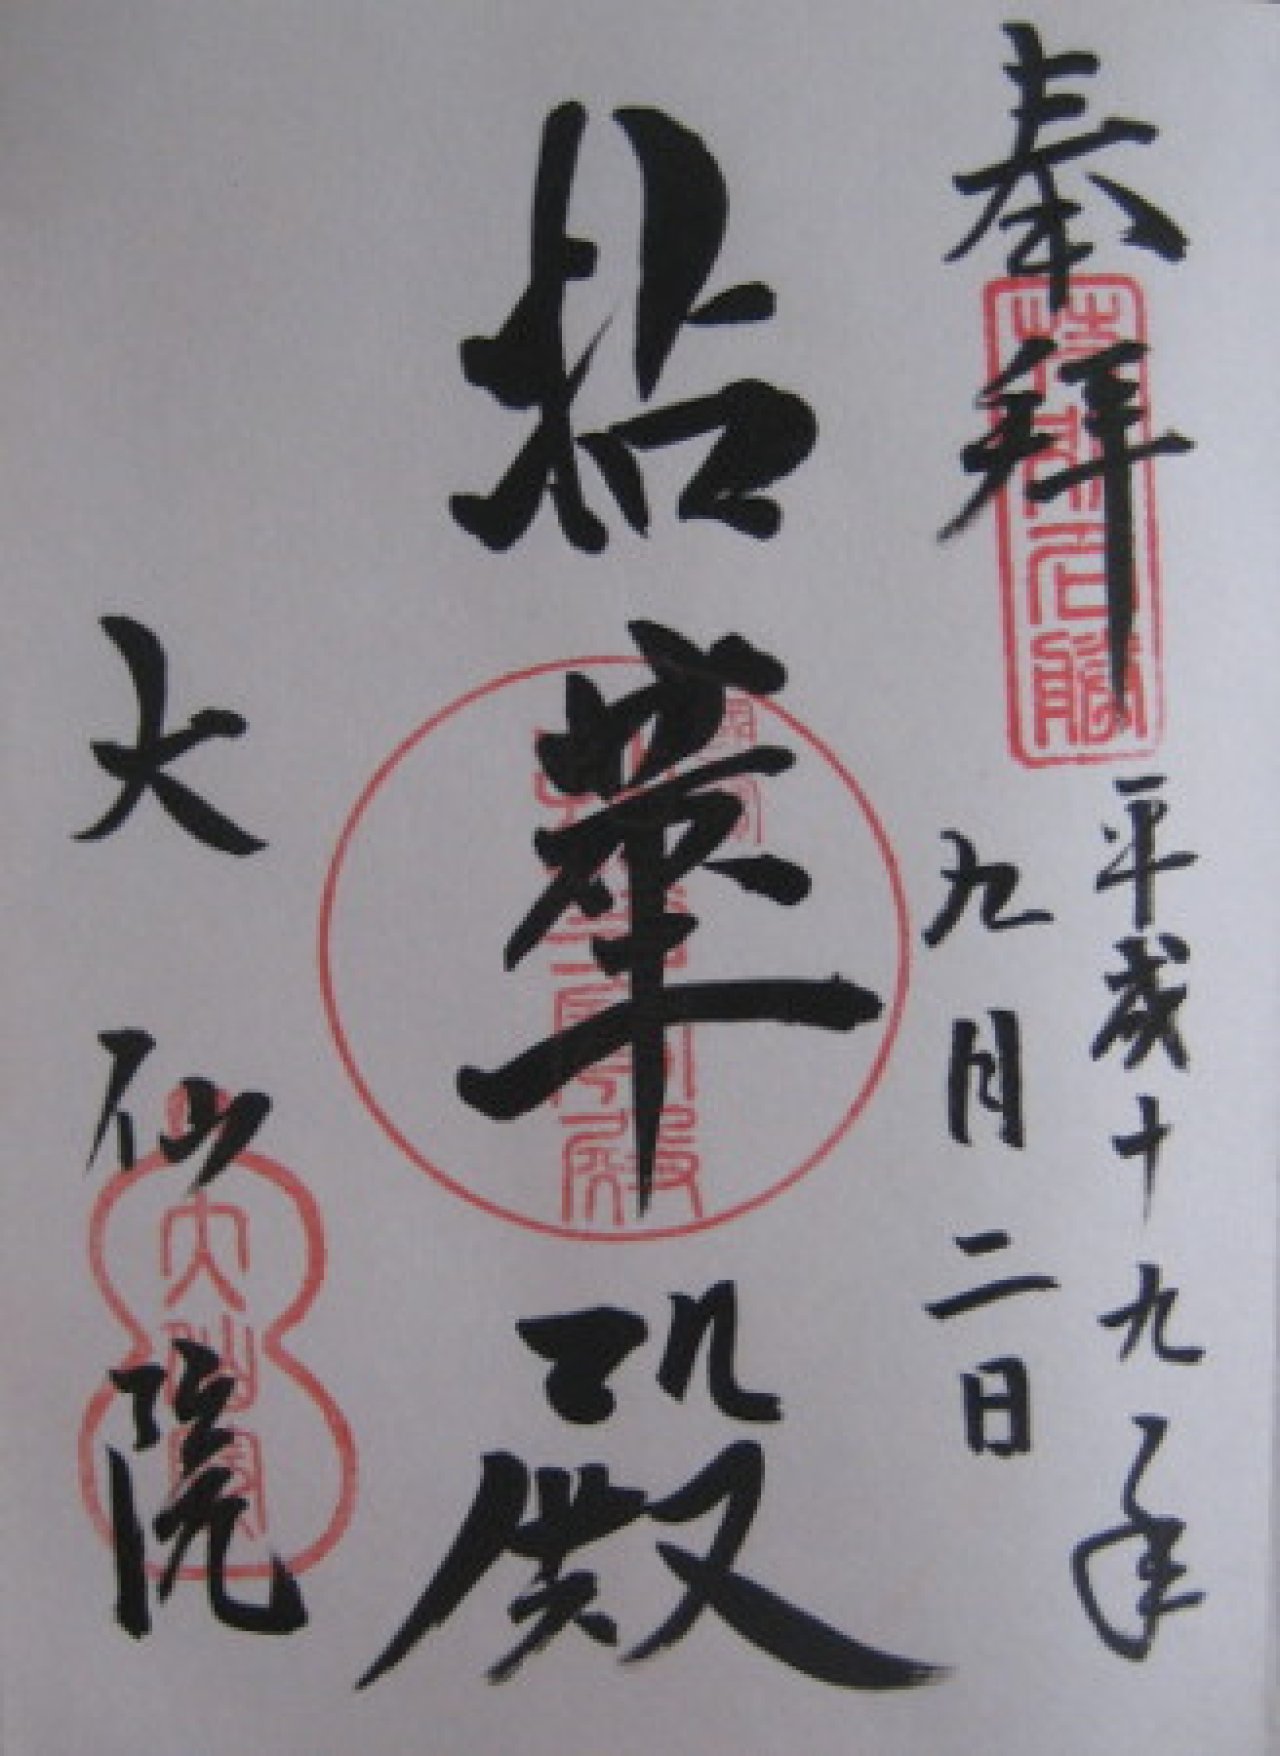 奉拝
平成十九年
九月二日
拈華殿
大仙院
大仙院